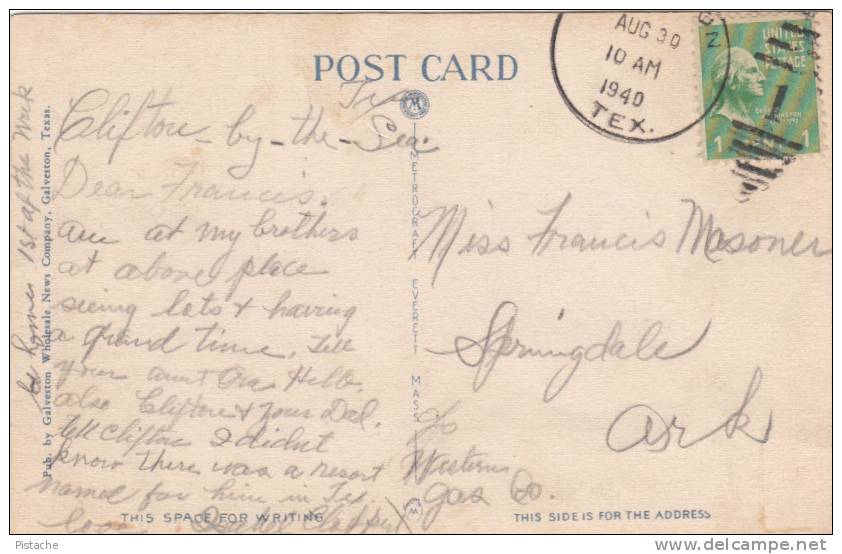 POST CARD
AUG 30
10 AM
1940
TEX.
UNITED
STATES
POSTAGE
1 1
Tex
Clifton-by-the-Sea.
Dear Francis.
am at my brothers
at above place
seeing lots & having
a grand time. Tell
your aunt Ora Hello.
also Clifton & your Dad.
tell Clifton I didnt
know there was a resort
named for him in Tex.
love
be home 1st of the Week
Pub. by Galveston Wholesale News Company, Galveston, Texas.
METROCRAFT EVERETT MASS
Miss Francis Masoner
Springdale
Ark
c/o
Western
Gas Co.
THIS SPACE FOR WRITING
THIS SIDE IS FOR THE ADDRESS
Pistache
delcampe.net